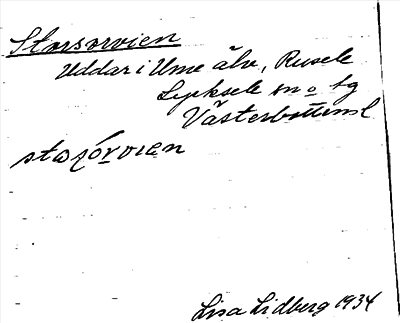 Storsorvien
Uddar i Ume älv, Rusele
Lycksele sn o tg
Västerbottens l
Lisa Lidberg 1934